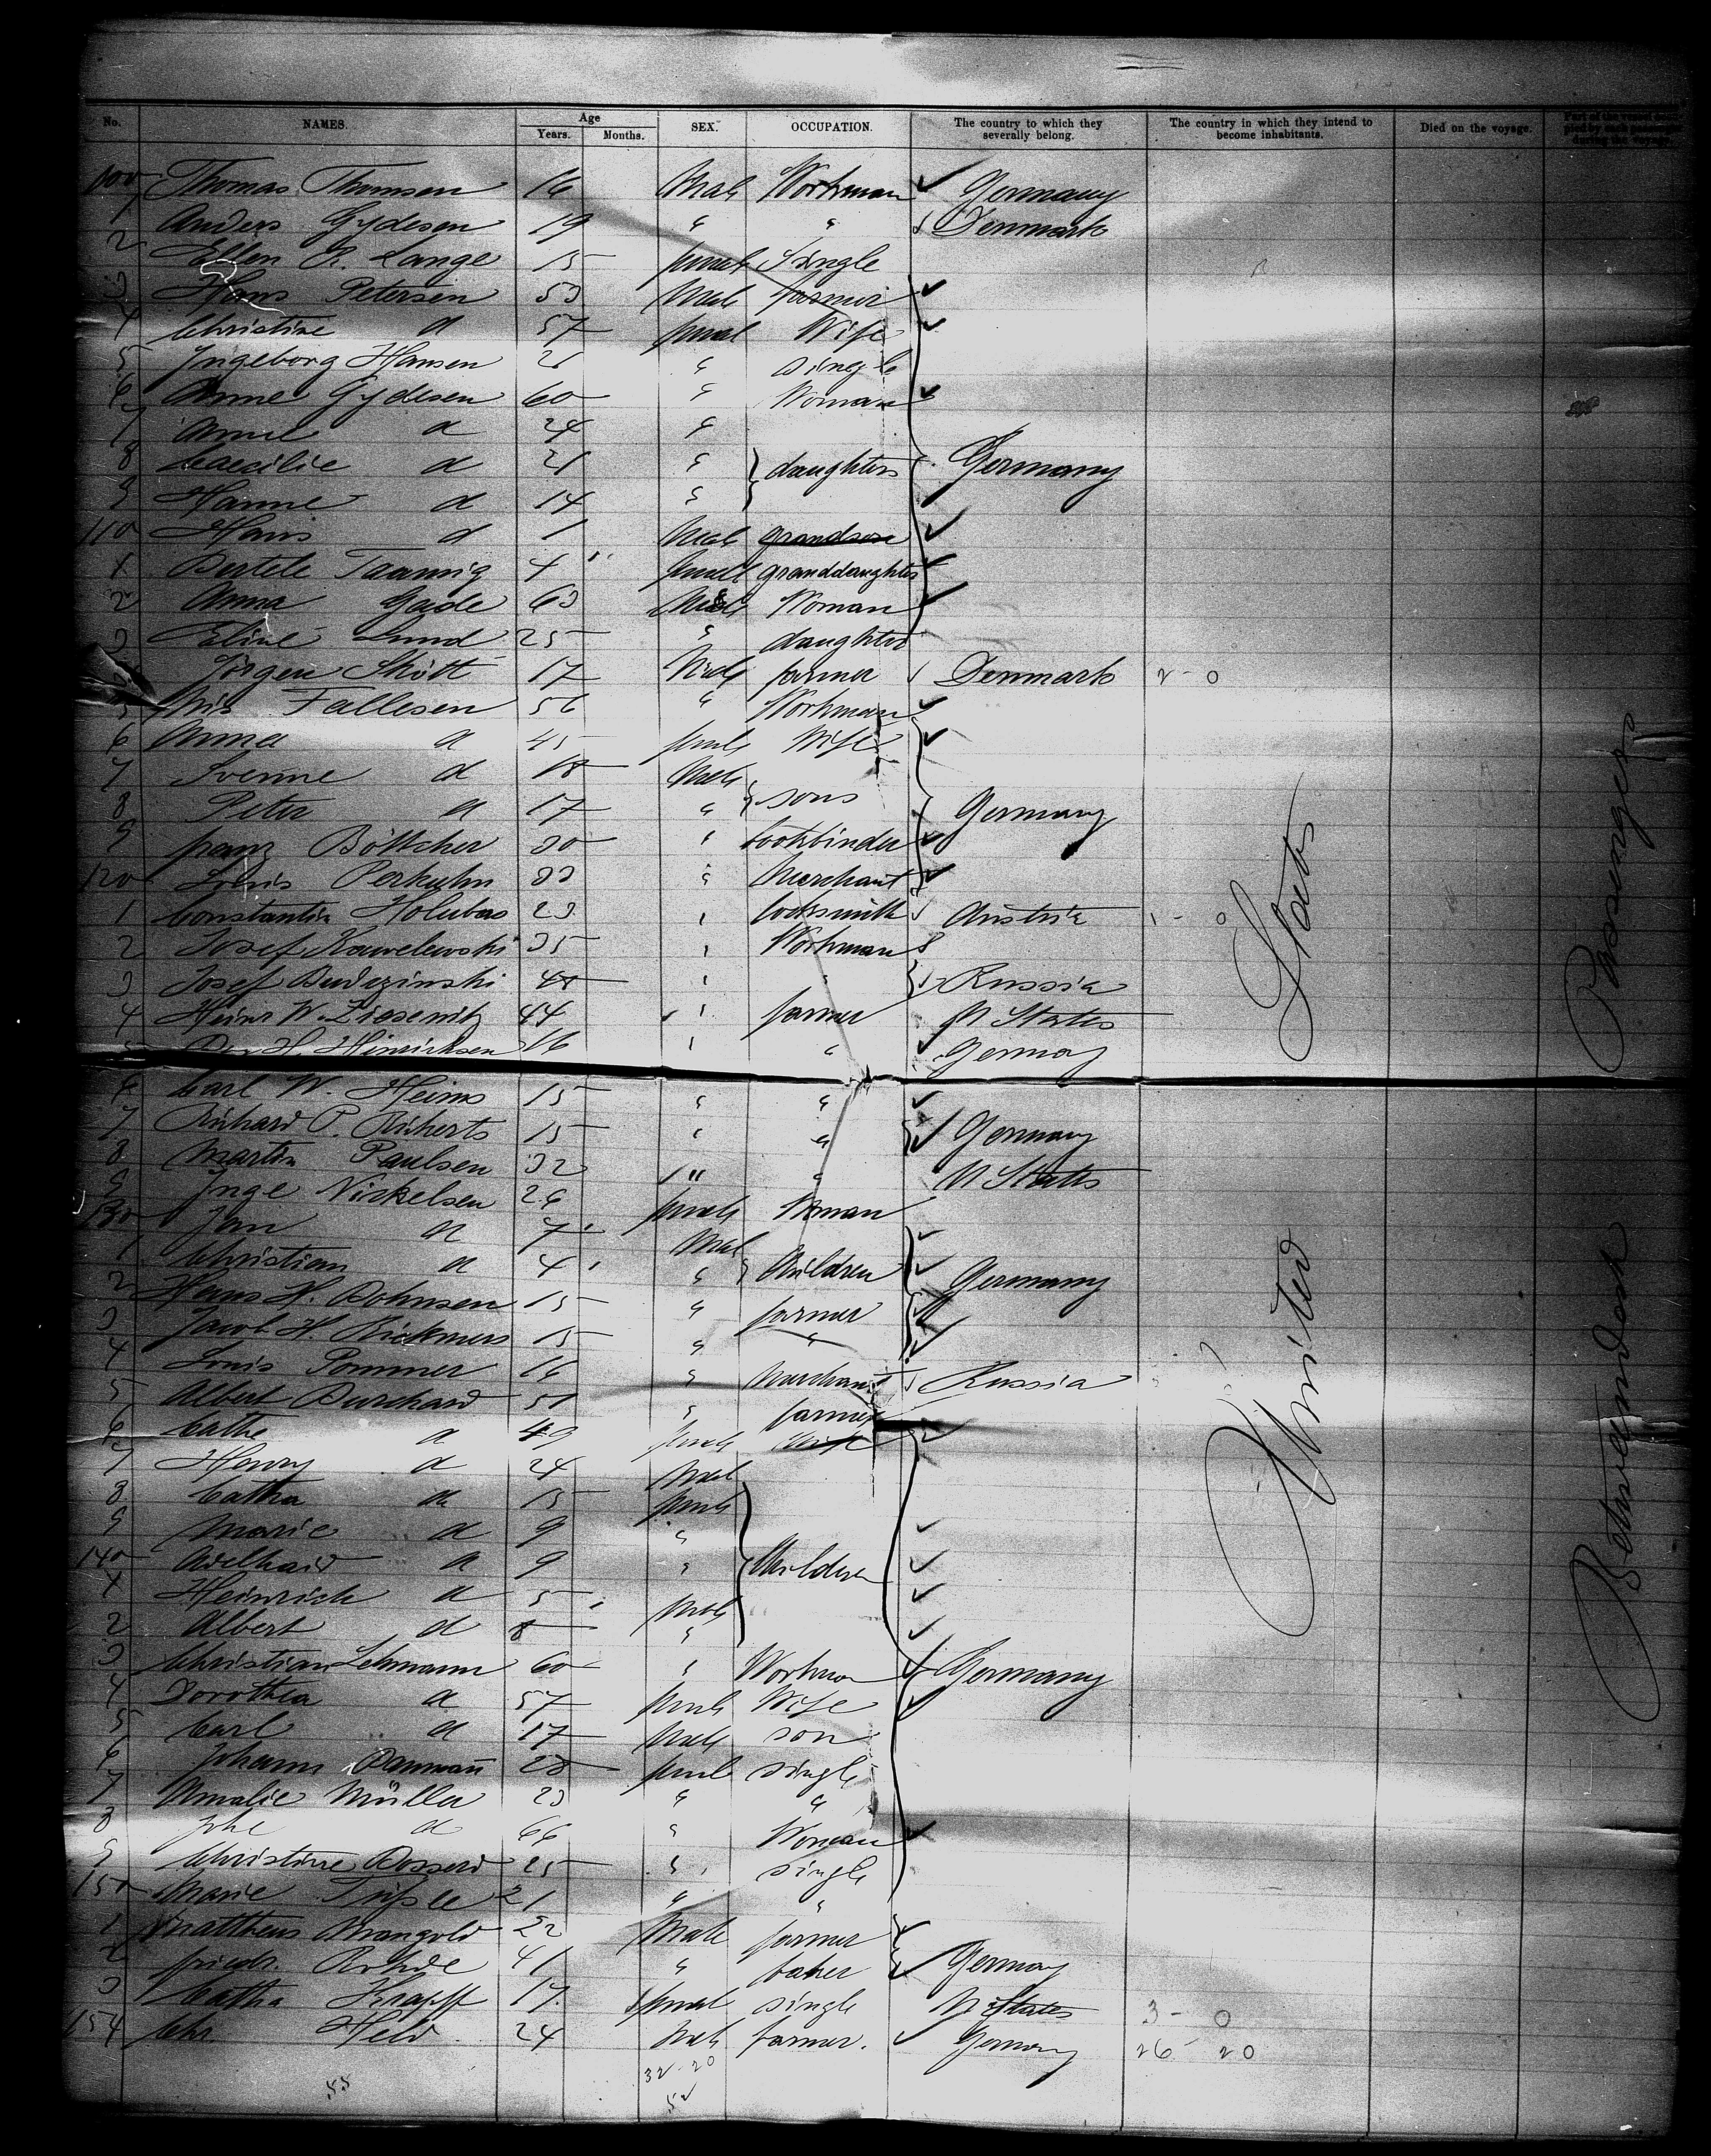 No. NAMES. Age Years. Months. SEX. OCCUPATION. The country to which they severally belong. The country in which they intend to become inhabitants. Died on the voyage.
100 Thomas Thomsen 16 Male Workman Germany
1 Anders Gydesen 19 " " Denmark
2 Ellen R. Lange 15 female Single
3 Hans Petersen 53 Male farmer
4 Christine d 57 female Wife
5 Ingeborg Hansen 21 " single
6 Anne Gydesen 60 " Woman
7 Anne d 24 "
8 Caecilie d 21 " daughters Germany
9 Hanne d 14 "
110 Hans d 1 Male grandson
1 Bertele Taannig 4 female granddaughter
2 Anna Gade 63 Woman
3 Eline Lund 25 " daughter
4 Jörgen Skött 17 Male farmer Denmark 2 - 0
5 Nis Fallesen 56 " Workman
6 Anna d 45 female Wife
7 Svenne d 18 Male
8 Peter d 17 " sons Germany
9 franz Böttcher 30 " bookbinder
120 Louis Perkuhn 33 " Merchant
1 Constantin Holubas 23 " locksmith Austria 1 - 0
2 Josef Kawelewski 35 " Workman
3 Josef Budezinski 48 " " Russia
4 Heinr W. Ziesenitz 44 " farmer U States
5 H. Hinrichsen 16 " " Germay
6 Carl W. Heims 15 " "
7 Richard P. Richerts 15 " " Germany
8 Martin Paulsen 32 " " U States
9 Inge Nickelsen 26 female Woman
130 Jan d 7 Male
1 Christian d 4 " Children Germany
2 Hans H. Bohnsen 15 " farmer
3 Jacob H. Rickmers 15 " "
4 Louis Pommer 16 " Merchant Russia
5 Albert Burchard 51 " farmer
6 Cathe d 49 female Wife
7 Henry d 24 Male
8 Catha d 15 female
9 Marie d 9 "
140 Adelhaid d 9 " Children
1 Heinrich d 5 Male
2 Albert d 8 "
3 Christian Lehmann 60 " Workman Germany
4 Dorothea d 57 female Wife
5 Carl d 17 Male son
6 Johanne Dammann 28 female single
7 Amalie Müller 23 " "
8 d 66 " Woman
9 Christine Bosserd 25 " single
150 Marie 21 " "
1 Mattheus Mangold 22 Male farmer
2 friedr. Rohde 41 " baker Germany
3 Catha Krapff 17 female single U States 3 - 0
154 Chr Held 24 Male farmer. Germany 26 - 20
55
32 - 20
52
United States
Betweendeck Passengers